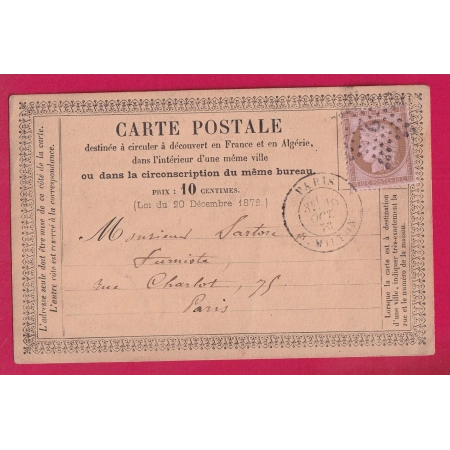 CARTE POSTALE
destinée à circuler à découvert en France et en Algérie,
dans l'intérieur d'une même ville
ou dans la circonscription du même bureau.
PRIX : 10 CENTIMES.
(Loi du 20 Décembre 1872.)
Monsieur Sartore
Fumiste
rue Charlot, 75
Paris
L'adresse seule doit être mise de ce côté de la carte.
L'autre côté est réservé à la correspondance.
Lorsque la carte est à destination
d'une ville, indiquer très-exactement la
rue et le numéro de la maison.
PARIS
OCT